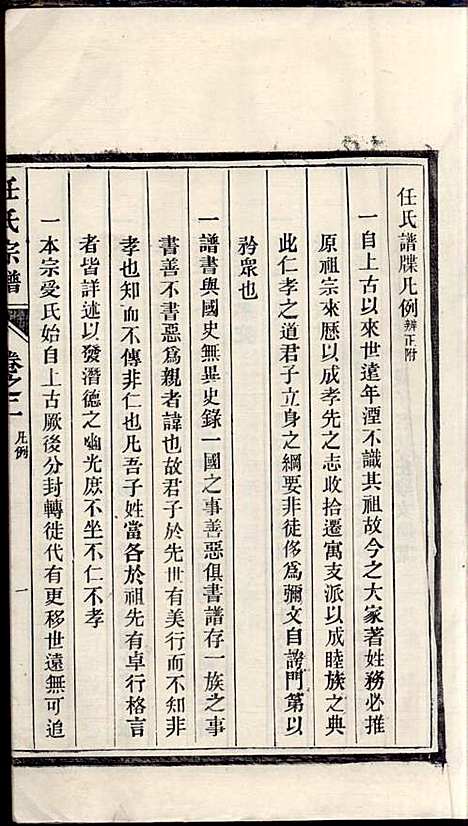 任氏譜牒凡例 辨正附
一自上古以來世遠年湮不識其祖故今之大家著姓務必推
原祖宗來歷以成孝先之志收拾遷寓支派以成睦族之典
此仁孝之道君子立身之綱要非徒侈為彌文自誇門第以
矜衆也
一譜書與國史無異史錄一國之事善惡俱書譜存一族之事
書善不書惡為親者諱也故君子於先世有美行而不知非
孝也知而不傳非仁也凡吾子姓當各於祖先有卓行格言
者皆詳述以發潛德之幽光庶不坐不仁不孝
一本宗受氏始自上古厥後分封轉徙代有更移世遠無可追
任氏宗譜
卷之一
凡例
一